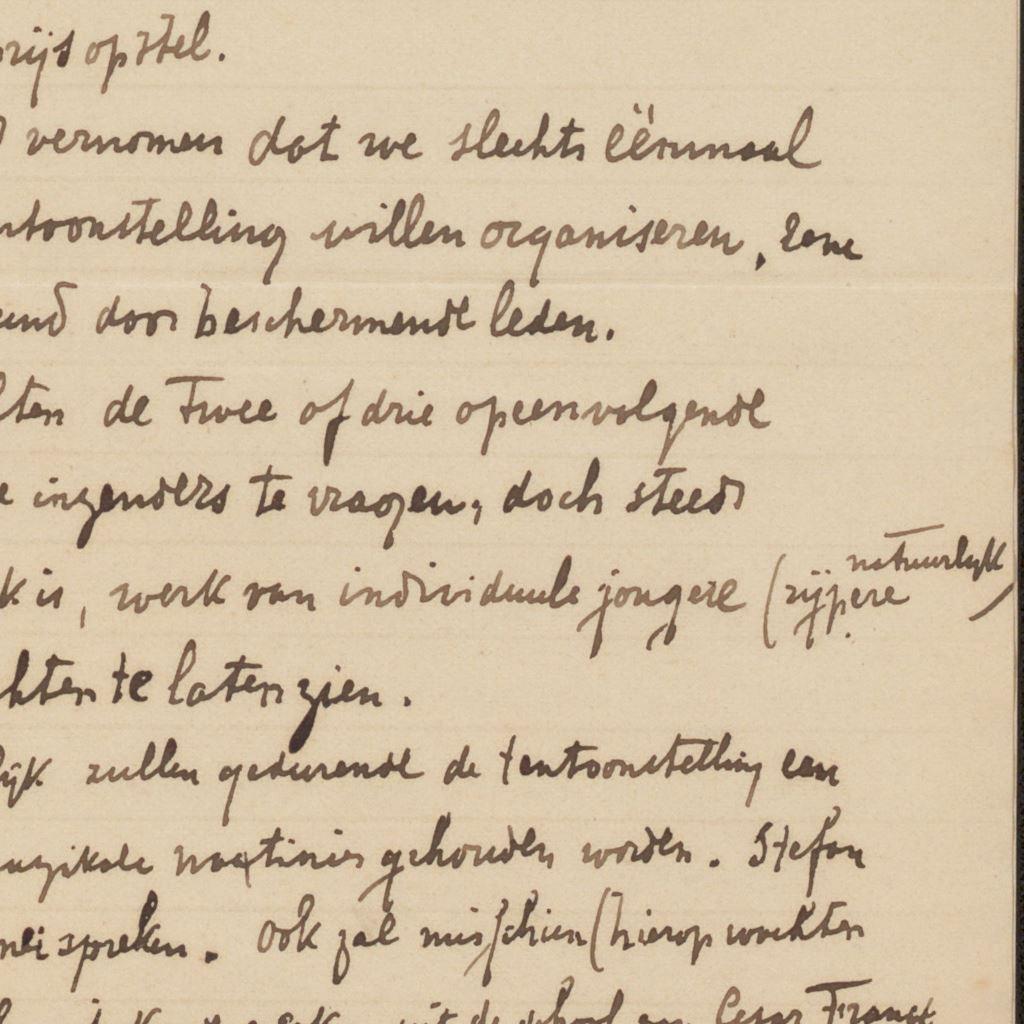 prijs opstel.
vernomen dat we slechts ëënmaal
ntoonstelling willen organiseren, eene
eund door beschermende leden.
lten de twee of drie opeenvolgende
e inzenders te vragen, doch steeds
k is, werk van individuele jongere (rijpere natuurlijk)
chten te laten zien.
lijk zullen gedurende de tentoonstelling een
uzikale matinies gehouden worden. Stefan
spreken. Ook zal misschien (hierop wachten
uit de school van Cesar Franck